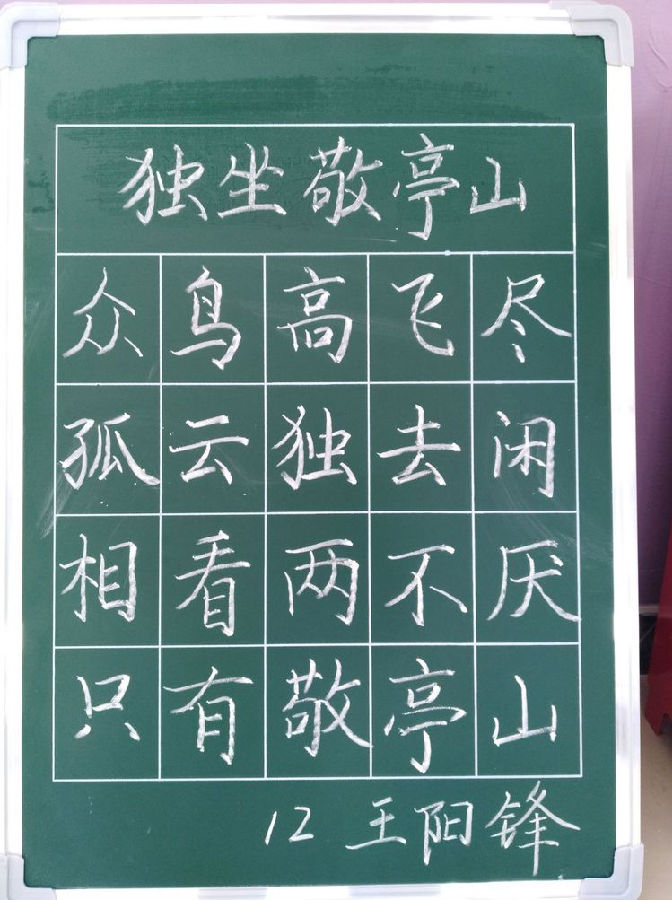 独坐敬亭山
众鸟高飞尽
孤云独去闲
相看两不厌
只有敬亭山
12 王阳锋